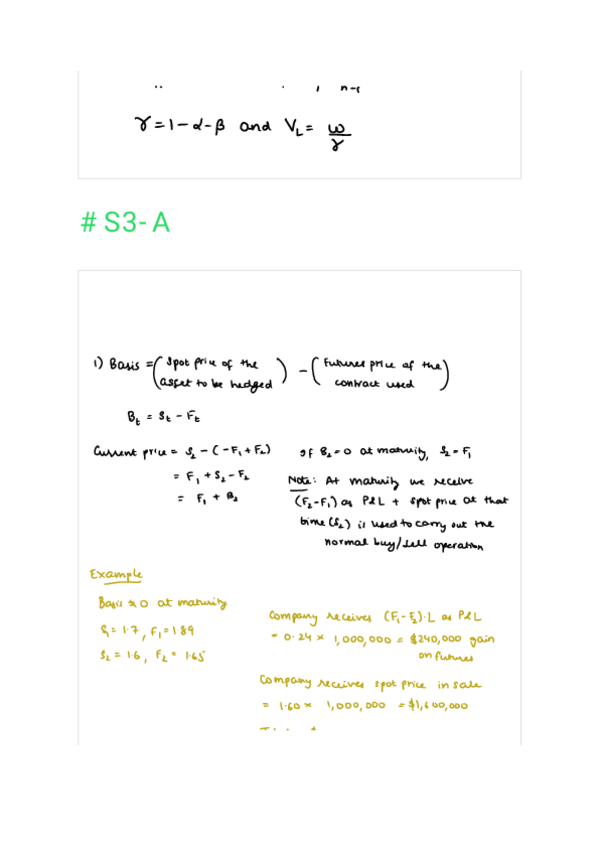 n-1
γ = 1 - α - β and V_L = ω/γ
# S3- A
1) Basis = (Spot price of the asset to be hedged) - (Futures price of the contract used)
B_t = S_t - F_t
Current price = S_2 - (-F_1 + F_2)
= F_1 + S_2 - F_2
= F_1 + B_2
If B_2 = 0 at maturity, S_2 = F_1
Note: At maturity we receive
(F_2 - F_1) as P&L + spot price at that
time (S_2) is used to carry out the
normal buy/sell operation
Example
Basis ≠ 0 at maturity
S_1 = 1.7, F_1 = 1.89
S_2 = 1.6, F_2 = 1.65
Company receives (F_1 - F_2).L as P&L
= 0.24 × 1,000,000 = $240,000 gain
on futures
Company receives spot price in sale
= 1.60 × 1,000,000 = $1,600,000